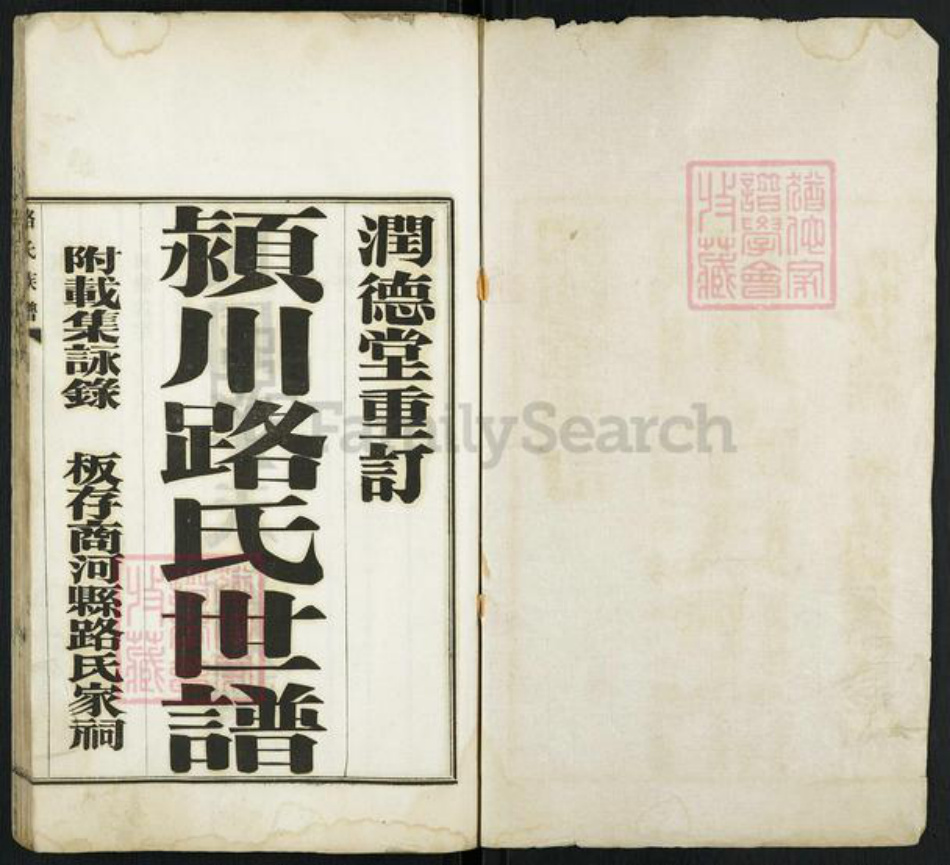 潤德堂重訂
潁川路氏世譜
附載集詠錄　板存商河縣路氏家祠
路氏族譜
譜學會
收藏
FamilySearch